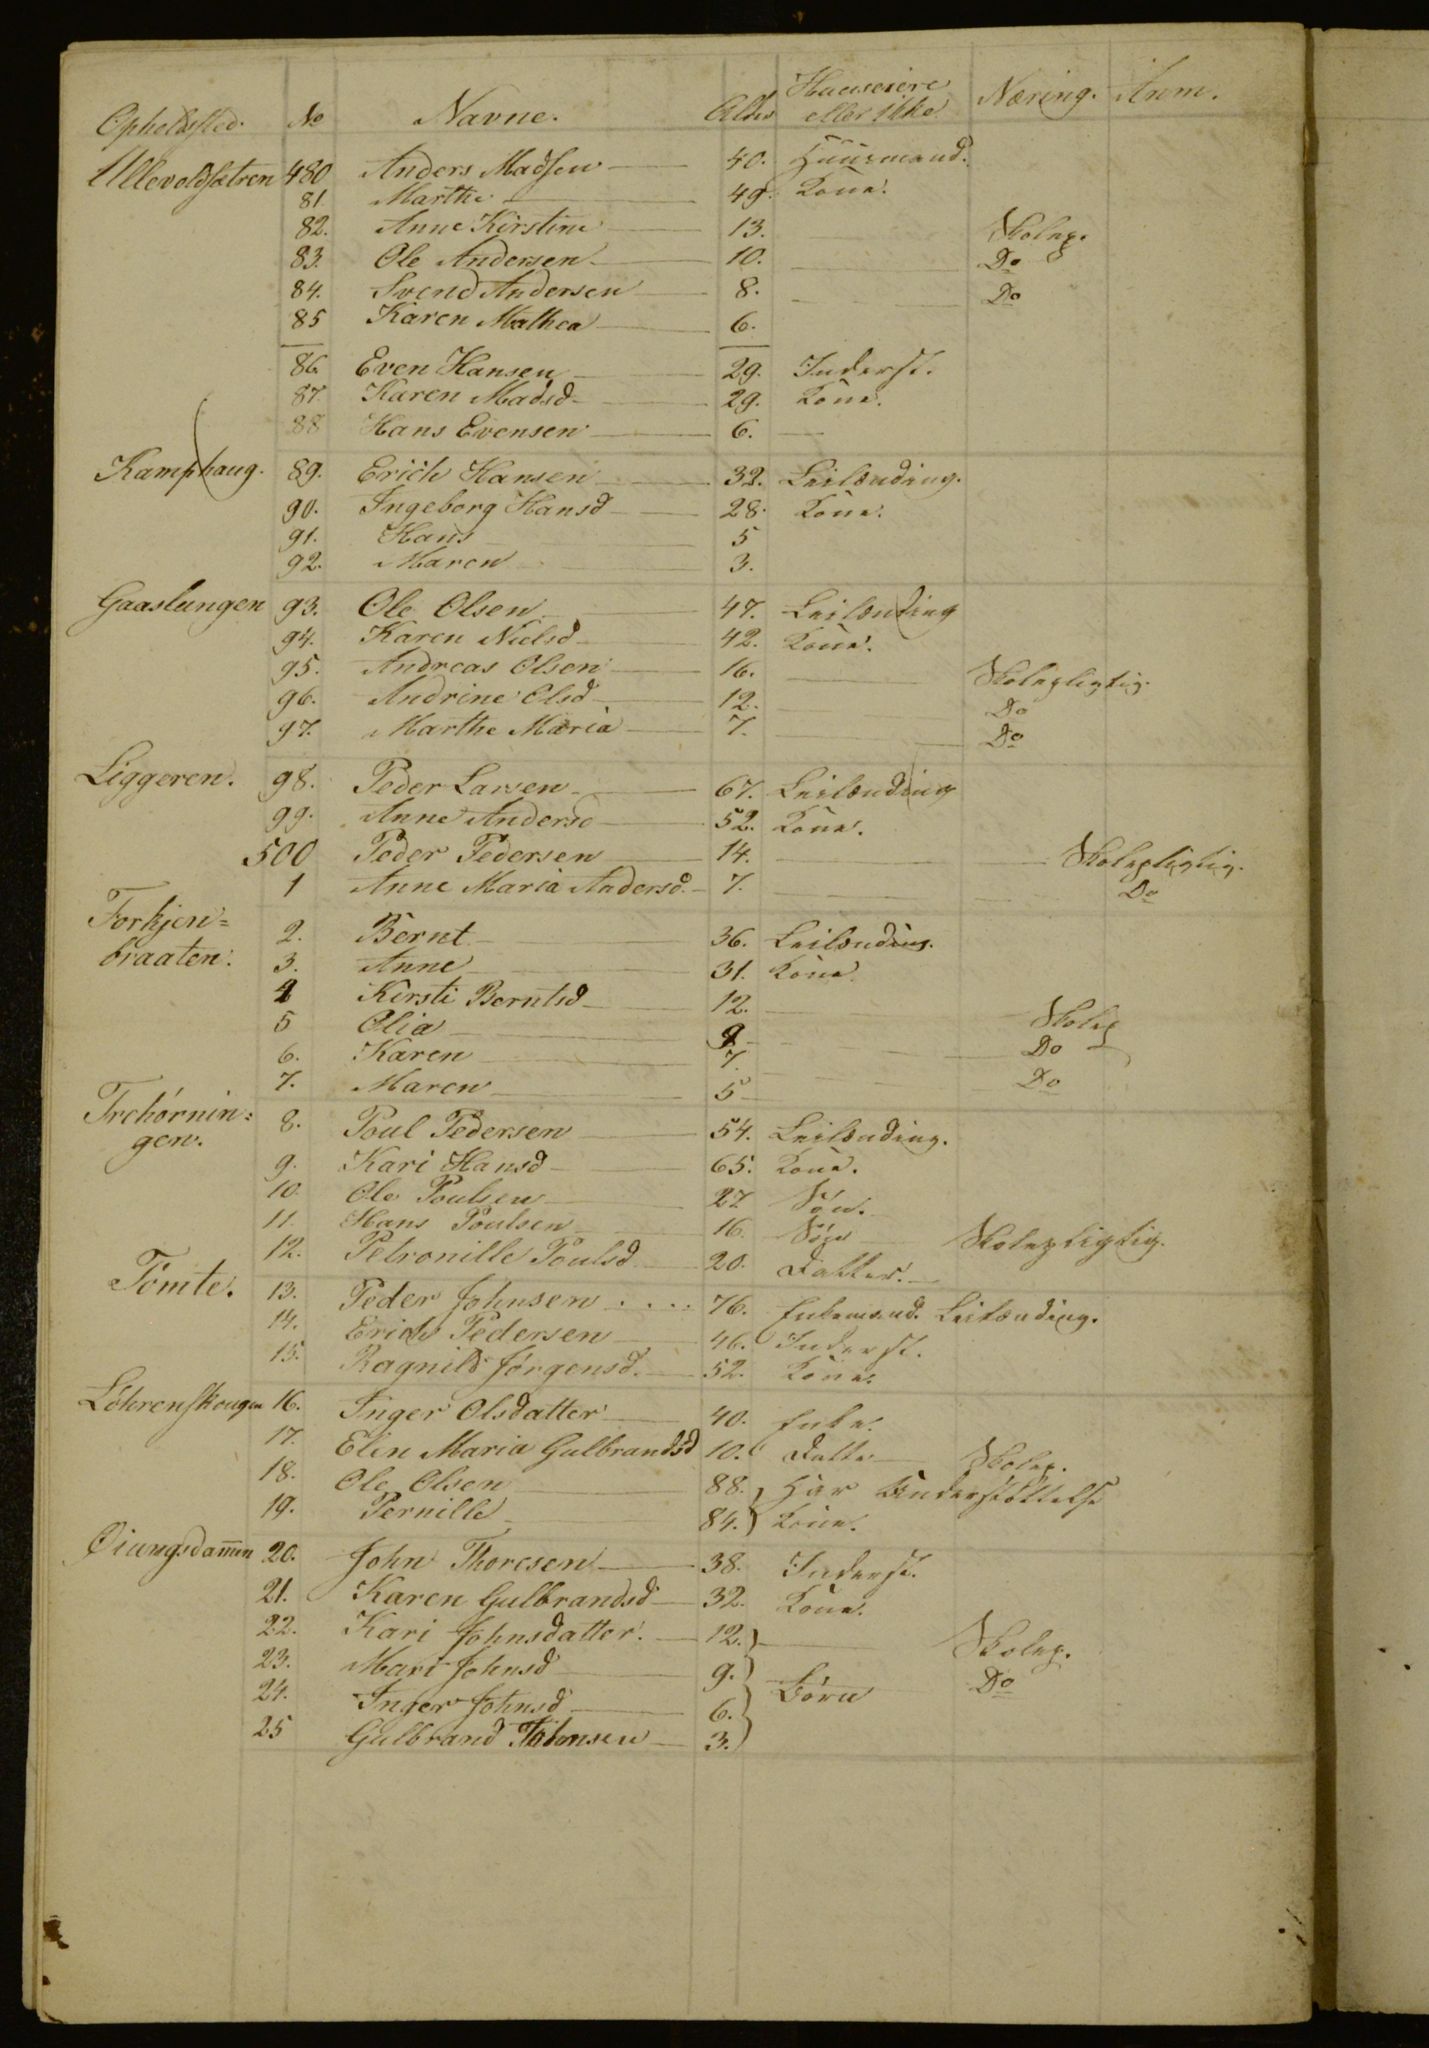 Opholdsted. No Navne. Alder Huuseiere eller ikke Næring. Anm.
Ullevoldsætren 480 Anders Madsen 40. Huusmand.
81. Marthe 49. Kone.
82. Anne Kirstine 13. Skolep.
83. Ole Andersen 10. Do
84. Svend Andersen 8. Do
85 Karen Mathea 6.
86 Even Hansen 29. Inderst.
87. Karen Madsd 29. Kone.
88 Hans Evensen 6.
Kamphaug. 89. Erich Hansen 32. Leilænding.
90. Ingeborg Hansd 28. Kone.
91. Hans 5
92. Maren 3.
Gaaslungen 93. Ole Olsen 47. Leilænding
94. Karen Nielsd 42. Kone.
95. Andreas Olsen 16. Skolepligtig.
96. Andrine Olsd 12. Do
97. Marthe Maria 7. Do
Liggeren. 98. Peder Larsen 67. Leilænding
99. Anne Andersd 52. Kone.
500 Peder Pedersen 14. Skolepligtig.
1 Anne Maria Andersd. 7. Do
Forkjen=
braaten. 2. Bernt 36. Leilænding.
3. Anne 31. Kone.
4 Kirsti Berntsd 12. Skolep
5 Olia 9 Do
6. Karen 7. Do
7. Maren 5
Trehörnin=
gen. 8. Poul Pedersen 54. Leilænding.
9. Kari Hansd 65. Kone.
10. Ole Poulsen 27 Sön.
11. Hans Poulsen 16. Sön Skolepligtig.
12. Petronille Poulsd 20. Datter.
Tomte. 13. Peder Johnsen .... 76. Enkemand. Leilænding.
14. Erich Pedersen 46. Inderst.
15. Ragnild Jörgensd. 52. Kone.
Löhrenskougen 16. Inger Olsdatter 40. Enke.
17. Elin Maria Gulbrandsd 10. Datter Skolep.
18. Ole Olsen 88. Har Understöttelse
19. Pernille 84. Kone.
Öiungsdammen 20. John Thoresen 38. Inderst.
21. Karen Gulbrandsd 32. Kone.
22. Kari Johnsdatter. 12. Skolep.
23. Mari Johnsd 9. Börn Do
24. Inger Johnsd 6.
25 Gulbrand Johnsen 3.